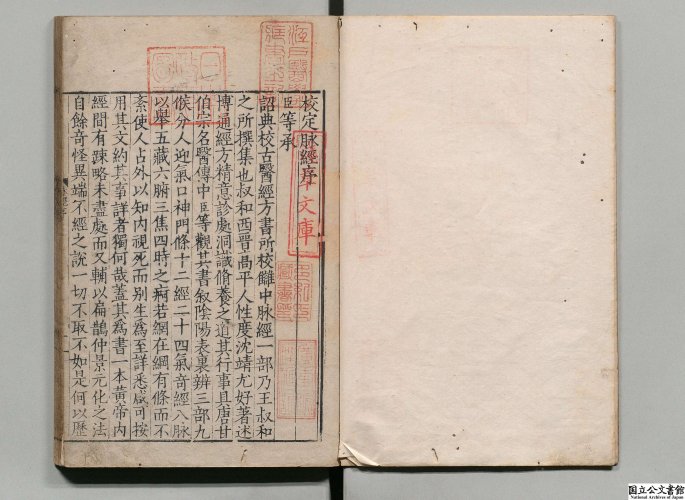 校定脉經序
臣等承
詔典校古醫經方書所校讎中脉經一部乃王叔和
之所撰集也叔和西晉高平人性度沈靖尤好著述
博通經方精意診處洞識脩養之道其行事具唐甘
伯宗名醫傳中臣等觀其書叙陰陽表裏辨三部九
候分人迎氣口神門條十二經二十四氣竒經八脉
以舉五藏六腑三焦四時之痾若網在綱有條而不
紊使人占外以知内視死而别生爲至詳悉咸可按
用其文約其事詳者獨何哉蓋其爲書一本黄帝内
經間有踈略未盡處而又輔以扁鵲仲景元化之法
自餘竒怪異端不經之說一切不取不如是何以歷
文庫
国立公文書館
National Archives of Japan